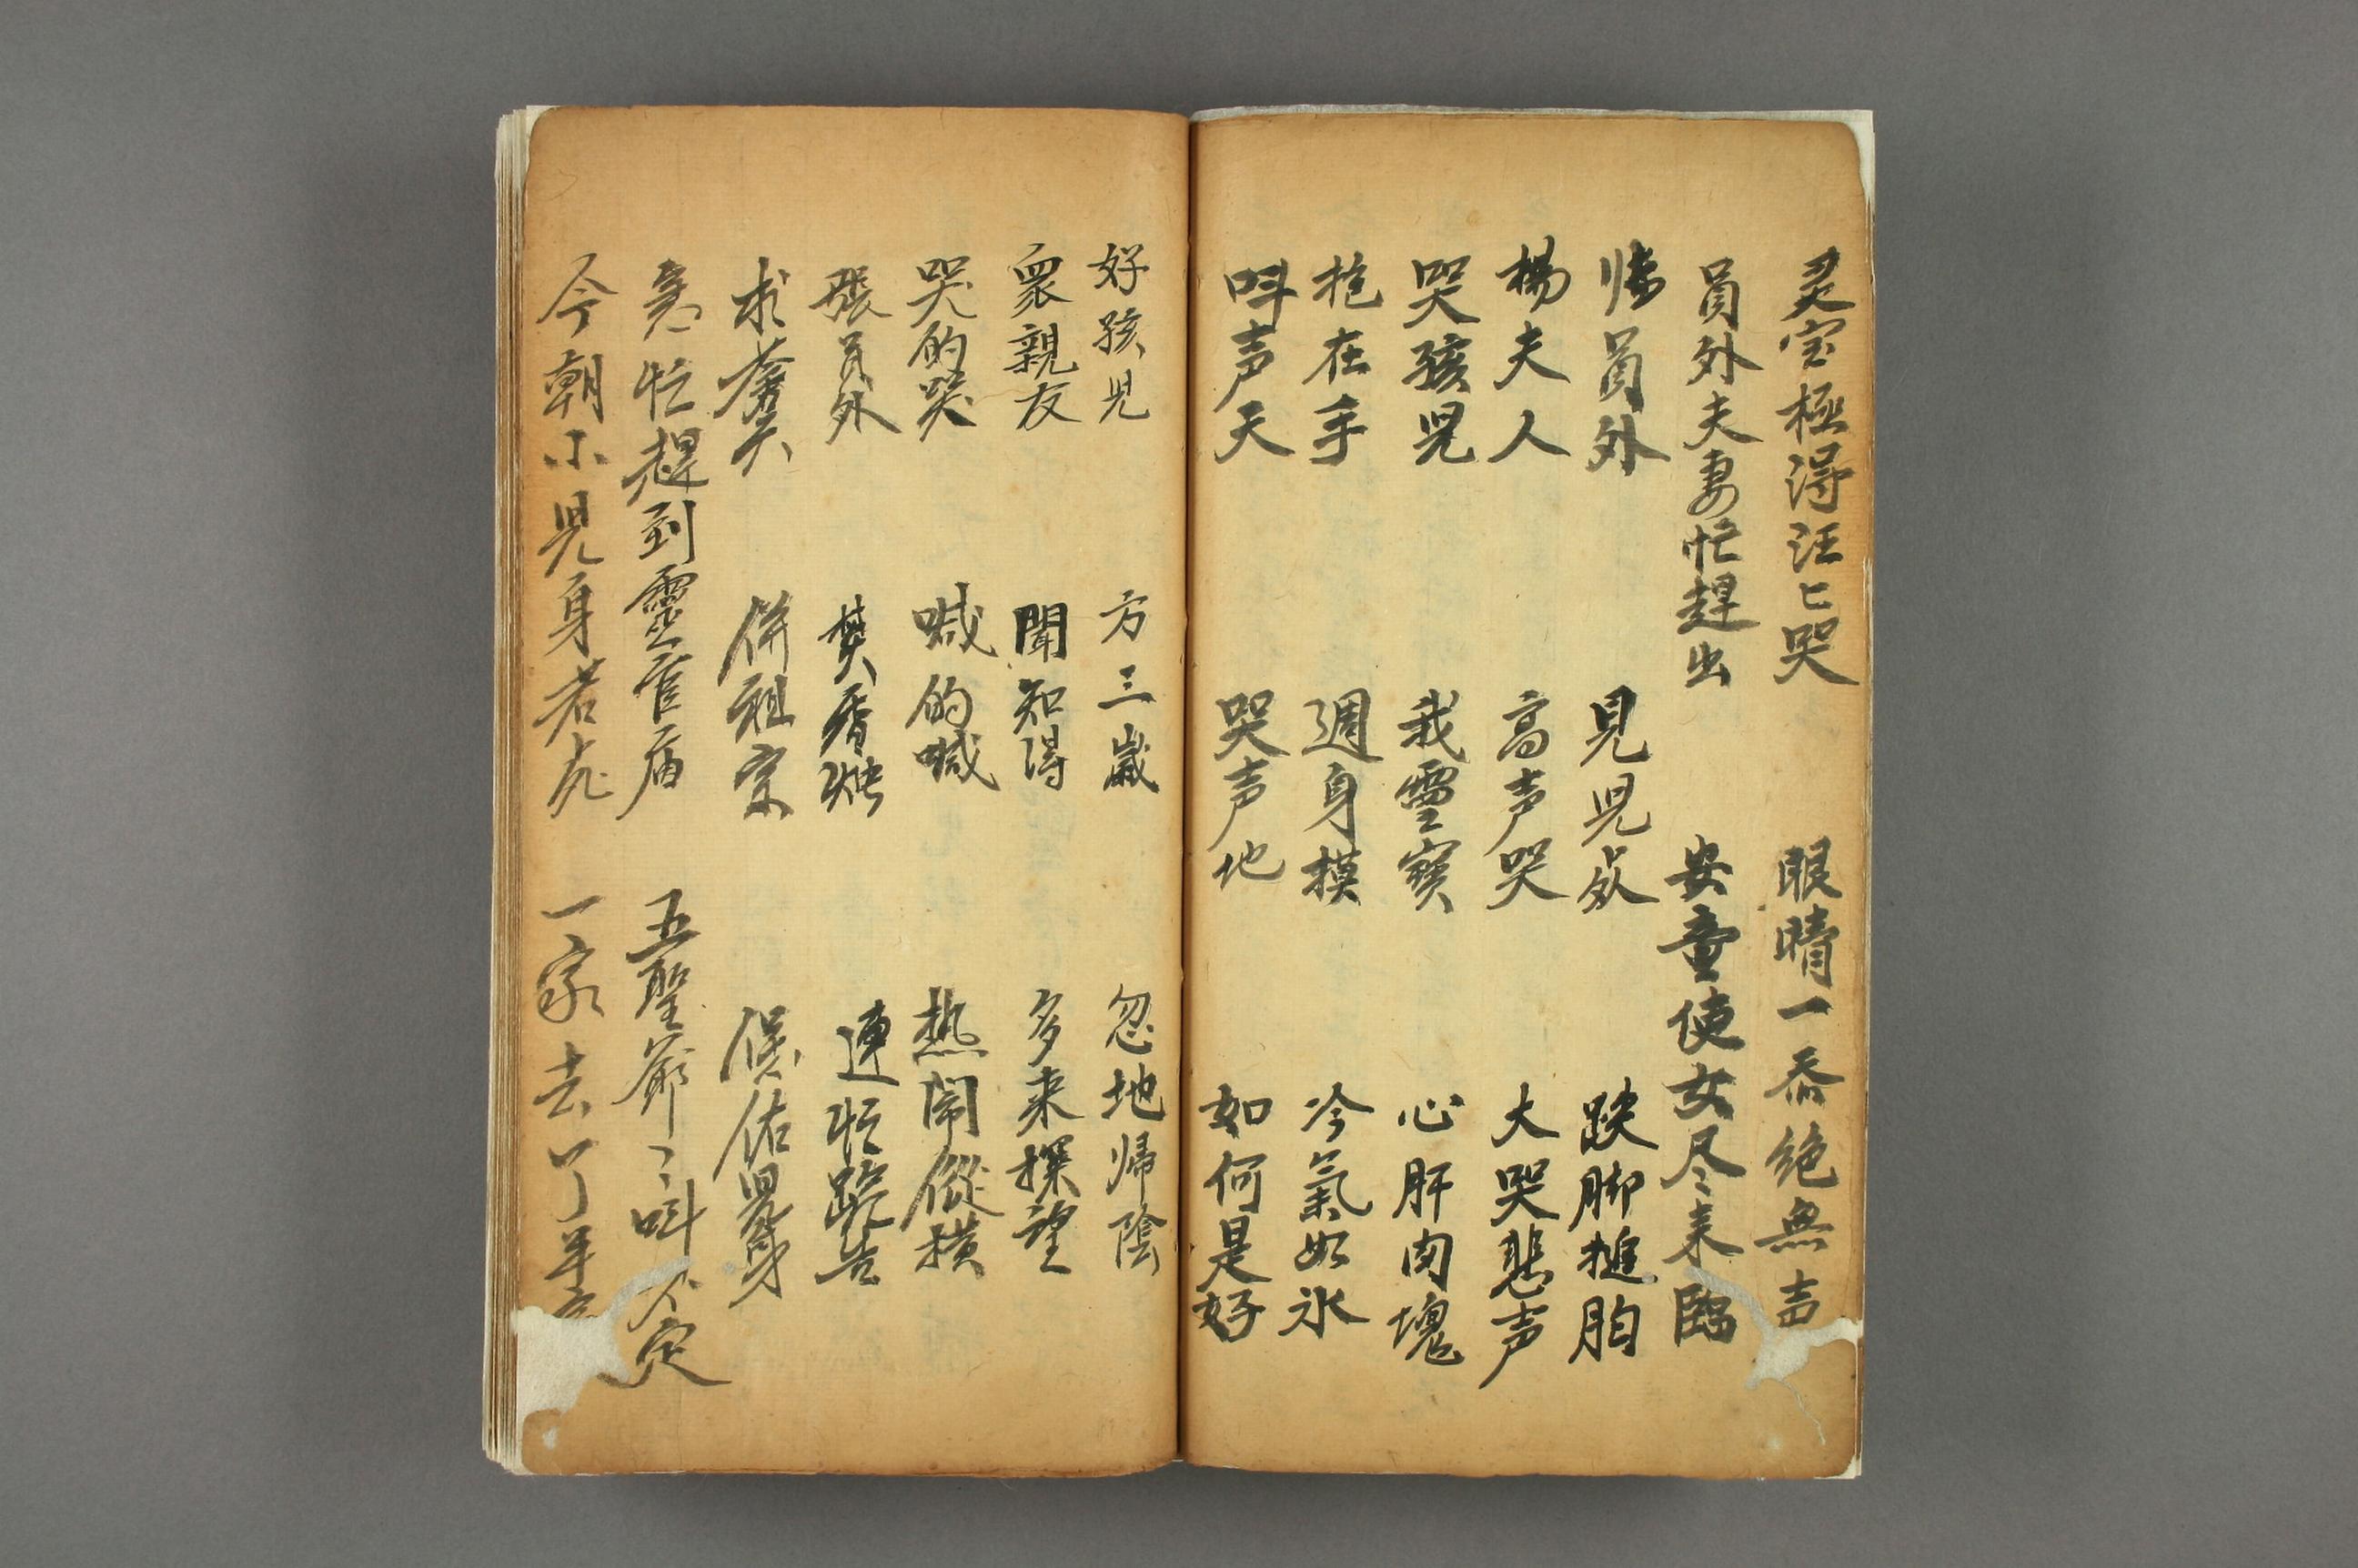 灵宝極得汪匕哭 眼晴一忝絶無声
員外夫妻忙趕出 安童使女尽来臨
員外 見児 跌脚搥胸
楊夫人 高声哭 大哭悲声
哭孩児 我靈寳 心肝肉塊
抱在手 週身摸 冷氣如氷
呌声天 哭声地 如何是好
好孩児 方三嵗 忽地帰陰
衆親友 聞知得 多来探望
哭的哭 喊的喊 热闹縱横
張員外 焚香烛 連忙跪告
求蒼天 併祖宗 保佑児身
急忙趕到靈官庙 五聖爺〻呌不定
今朝小児身若死 一家去了半